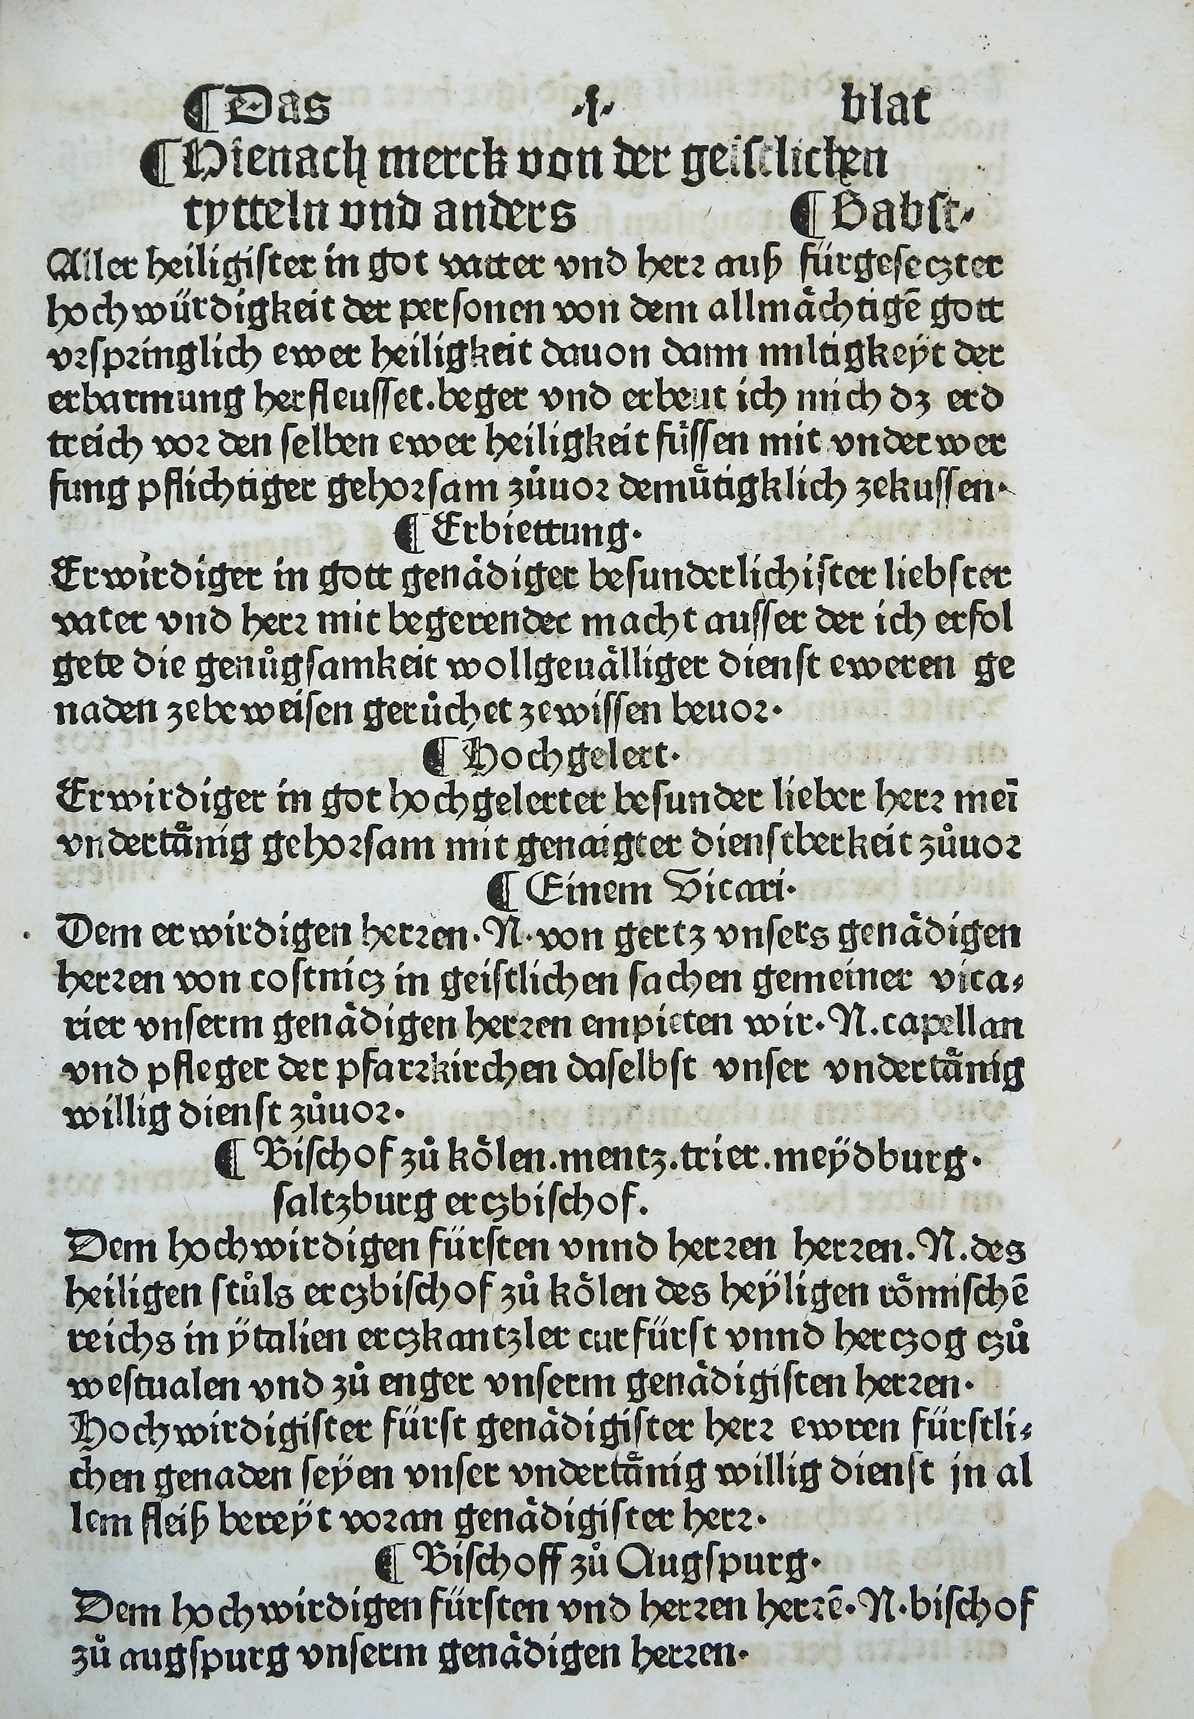 ¶ Das ·1· blat
¶ Hienach merck von der geistlichen
tytteln vnd anders ¶ Babst·
Aller heiligister in got vatter vnd herr auß fürgeseczter
hochwürdigkeit der personen von dem allmächtigē gott
vrspringlich ewer heiligkeit dauon dann miltigkeÿt der
erbarmung herfleusset. beger vnd erbeut ich mich dz erd
treich vor den selben ewer heiligkeit füssen mit vnderwer
fung pflichtiger gehorsam zůuor demütigklich zekussen·
¶ Erbiettung·
Erwirdiger in gott genädiger besunderlichister liebster
vater vnd herr mit begerender macht ausser der ich erfol
gete die genůgsamkeit wollgeuälliger dienst eweren ge
naden zebeweisen gerůchet zewissen beuor·
¶ Hochgelert·
Erwirdiger in got hochgelerter besunder lieber herr meī
vndertänig gehorsam mit genaigter dienstberkeit zůuor
¶ Einem Vicari·
Dem erwirdigen herren· N· von gertz vnsers genädigen
herren von costnicz in geistlichen sachen gemeiner vica⸗
rier vnserm genädigen herren empieten wir· N. capellan
vnd pfleger der pfarrkirchen daselbst vnser vndertänig
willig dienst zůuor·
¶ Bischof zů kölen. mentz. trier. meÿdburg·
saltzburg erczbischof.
Dem hochwirdigen fürsten vnnd herren herren. N. des
heiligen stůls erczbischof zů kölen des heÿligen römischē
reichs in ÿtalien erczkantzler curfürst vnnd herczog czů
westualen vnd zů enger vnserm genädigisten herren·
Hochwirdigister fürst genädigister herr ewren fürstli⸗
chen genaden seÿen vnser vndertänig willig dienst jn al
lem fleiß bereÿt voran genädigister herr·
¶ Bischoff zů Augspurg·
Dem hochwirdigen fürsten vnd herren herrē· N· bischof
zů augspurg vnserm genädigen herren·